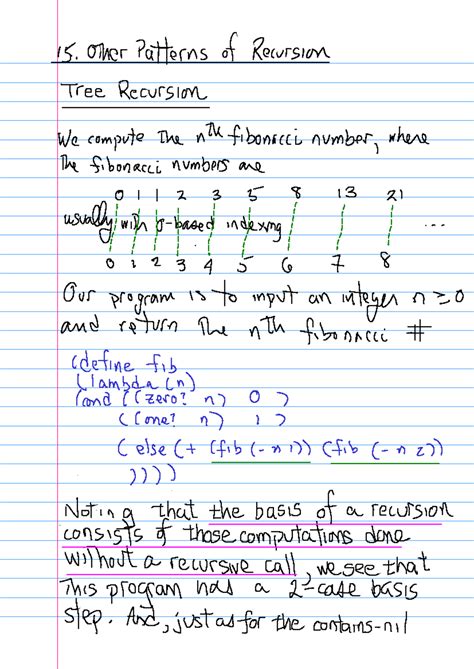 15. Other Patterns of Recursion
Tree Recursion
We compute the nth fibonacci number, where
the fibonacci numbers are
0 1 1 2 3 5 8 13 21
usually with 0-based indexing ...
0 1 2 3 4 5 6 7 8
Our program is to input an integer n ≥ 0
and return the nth fibonacci #
(define fib
(lambda (n)
(cond ((zero? n) 0 )
((one? n) 1 )
(else (+ (fib (- n 1)) (fib (- n 2))
))))
Noting that the basis of a recursion
consists of those computations done
without a recursive call, we see that
this program has a 2-case basis
step. And, just as for the contains-nil